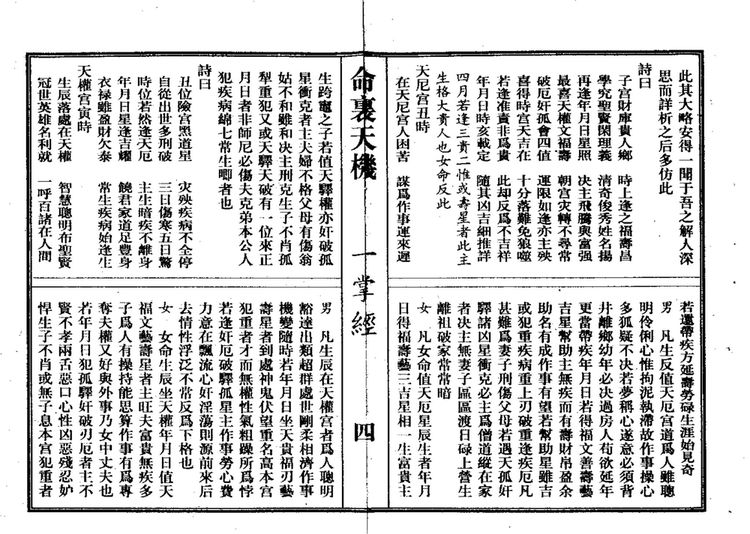 此其大略安得一聞于吾之解人深
思而詳析之后多仿此
詩曰
子宮財庫貴人鄉 時上逢之福壽昌
學究聖賢閑理義 清奇俊秀姓名揚
再逢年月日星照 決主飛騰與富强
最喜天權文福壽 朝宮灾轉不尋常
破厄奸孤會四值 運限如逢亦主殃
喜得時宮天吉在 十分落難免狼噬
若逢准責非爲貴 此却反爲不吉祥
年月日時亥載定 隨其凶吉細推詳
四月若逢三貴二惟或壽星者此主
生格大貴人也女命反此
天厄宮丑時
在天厄宮人困苦 謀爲作事運來遲
若還帶疾方延壽勞碌生涯始見奇
男 凡生辰在天厄宮道星人雖聰
明伶俐心惟拘泥執滯故作事操心
多狐疑不決若夢稱心遂意必須背
井離鄉幼年必決過房人苟欲延年
更當帶疾年月日若得福文善壽藝
吉星幫助主無疾而有壽財帛盈余
助名有成作事有望若幫助星雖吉
或犯重疾病重上刃破重逢疾厄凡
甚難爲妻子刑傷父母若遇天孤奸
驛諸凶星衝克必主爲僧道縱在家
者決主無妻子區區渡日碌上營生
離祖破家常常暗
女 凡女命值天厄星辰生者年月
日得福壽藝三吉星相一生富貴主
命裏天機 一掌經 四
生跨竈之子若值天驛權亦奸破孤
星衝克者主夫婦不格父母有傷翁
姑不和雖和决主刑克生子不肖孤
犁重犯又或天驛天破有一位來正
月日者非師尼必傷夫克弟本公人
犯疾病綿七常生唧者也
詩曰
丑位險宮黑道星 灾殃疾病不全停
自從出世多刑破 三日傷寒五日驚
時位若然逢天厄 主生暗疾不離身
年月日星逢吉耀 饒君家道足豐身
衣禄雖盈財欠泰 常生疾病始逢生
天權宮寅時
生辰落處在天權 智慧聰明布聖賢
冠世英雄名利就 一呼百諸在人間
男 凡生辰在天權宮者爲人聰明
豁達出類超群處世剛柔相濟作事
機變隨時若年月日坐天貴福刃藝
壽星者到處神鬼伏望重名高本宮
犯重者才而無權性氣粗躁所爲悖
若逢奸厄破驛孤星主作事勞心費
力意在飄流心奸淫蕩則源前來后
去情性浮泛不常反爲下格也
女 女命生辰坐天權年月日值天
福文藝壽星者主旺夫富貴無疾多
子爲人有操持能思算作事有爲專
奪夫權又好與外事乃女中丈夫也
若年月日犯孤驛奸破刃厄者主不
賢不孝兩舌惡口心性凶惡殘忍妒
悍生子不肖或無子息本宮犯重者